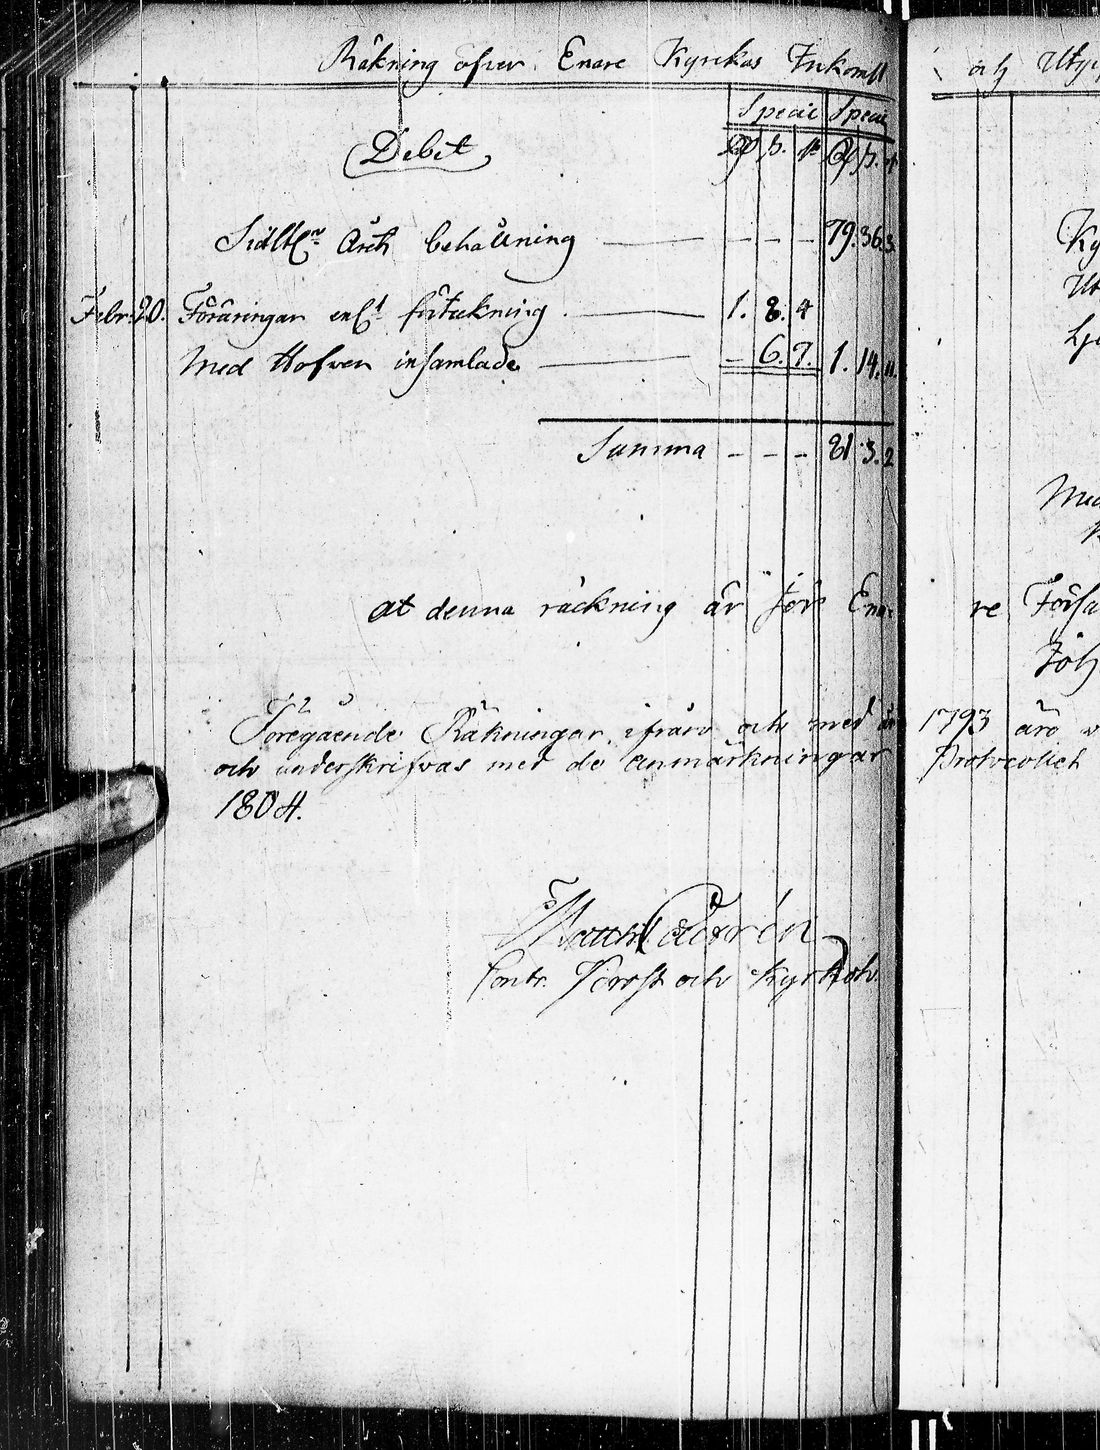 Räkning öfver Enare Kyrckas Inkomst och Utgif
Specie Specie
Debet
Sidstl. Åhrs behållning - - - 79. 36. 3.
Febr: 20. Föräringar enl:t förtekning 1. 8. 4
Med Hofven insamlade - 6. 7. 1. 14. 11.
Summa - - - 81 3. 2
at denna räckning är för Enare Försa
Joh
Föregående Räkningar ifrån och med år 1793 äro
och underskrifvas med de anmärkningar
1804.
Contr. Prost och Kyrkoh.
Ky
Ut
Lju
Med